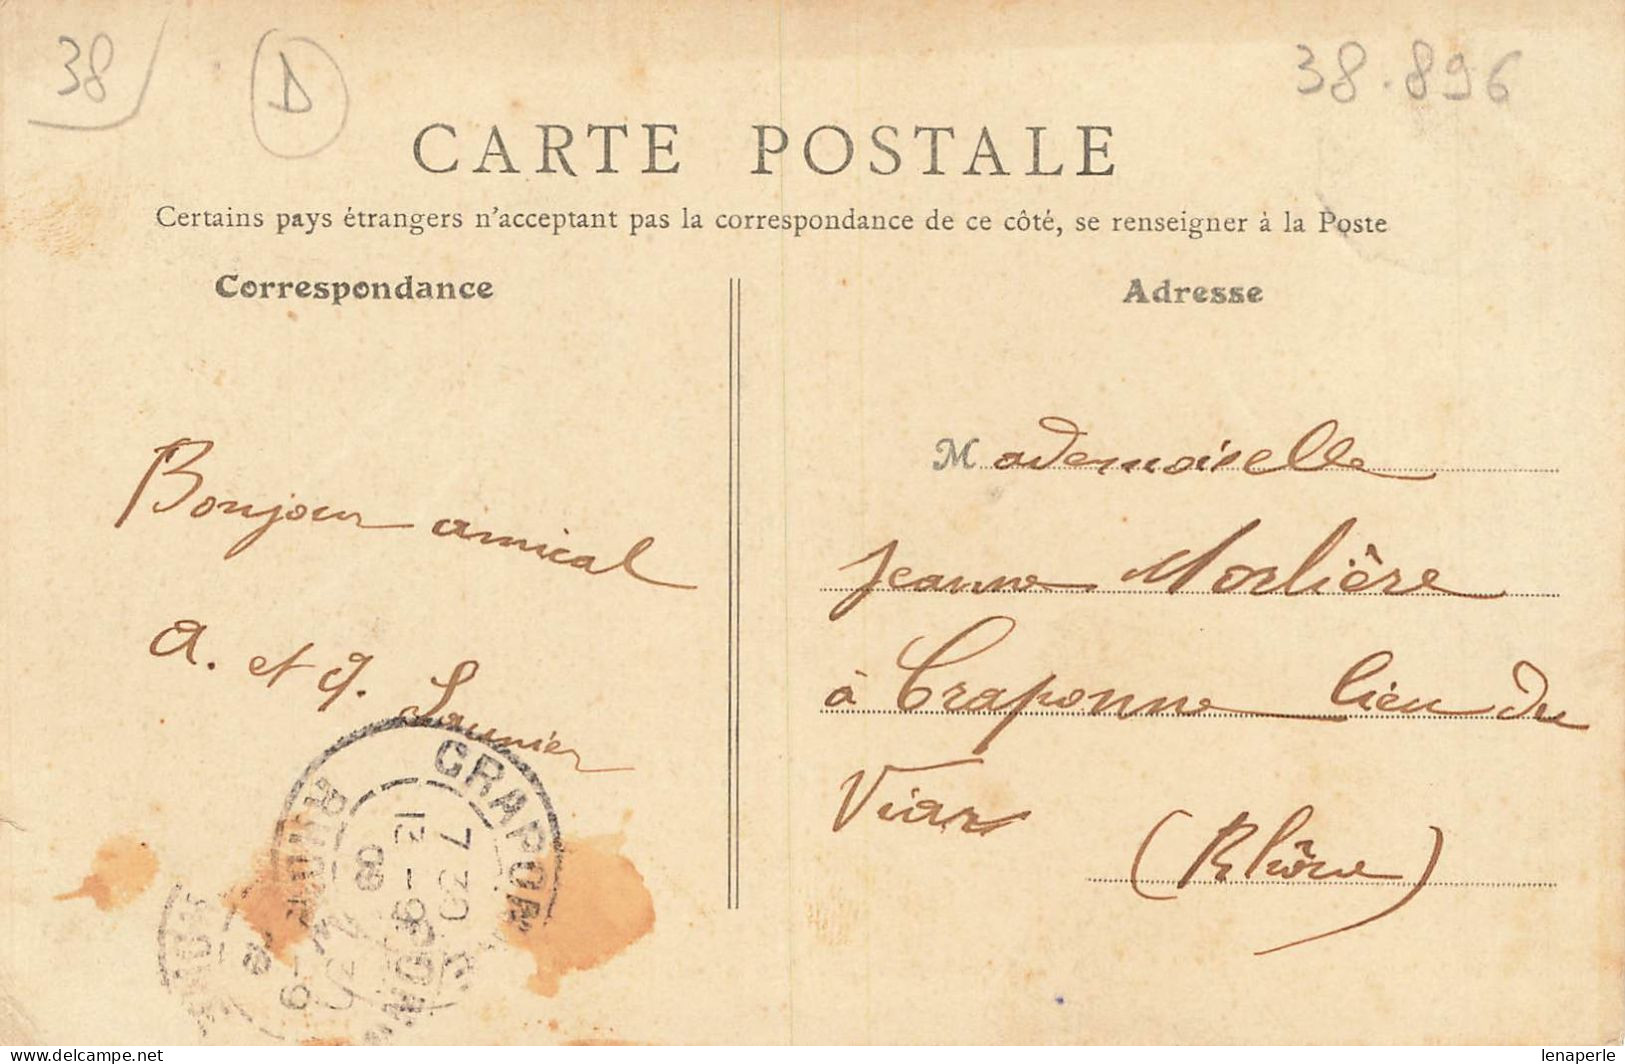 38
D
38.896
CARTE POSTALE
Certains pays étrangers n'acceptant pas la correspondance de ce côté, se renseigner à la Poste
Correspondance
Bonjour amical
A. et J. Saunier
Adresse
Mademoiselle
Jeanne Morlière
à Craponne lieu du
Viar
(Rhône)
CRAPON
RHONE
12-9
lenaperle